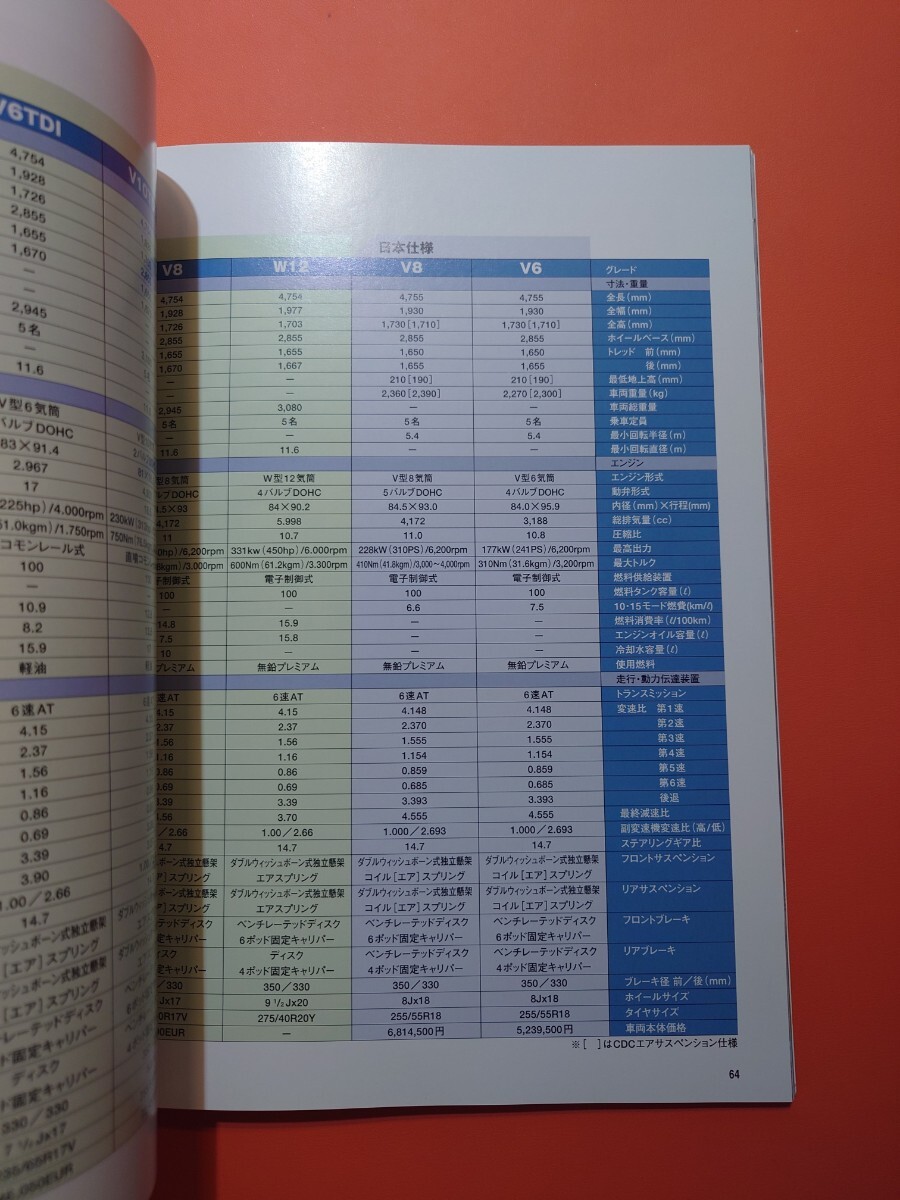 V6TDI
4,754
1,928
1,726
2,855
1,655
1,670
—
—
2,945
5名
—
11.6
V型6気筒
バルブDOHC
83×91.4
2.967
17
225hp)/4.000rpm
51.0kgm)/1.750rpm
コモンレール式
100
—
10.9
8.2
15.9
軽油
6速AT
4.15
2.37
1.56
1.16
0.86
0.69
3.39
3.90
1.00/2.66
14.7
[エア]スプリング
ド固定キャリパー
ディスク
ド固定キャリパー
330/330
7 1/2Jx17
235/65R17V
日本仕様
V8 W12 V8 V6 グレード
寸法・重量
4,754 4,754 4,755 4,755 全長(mm)
1,928 1,977 1,930 1,930 全幅(mm)
1,726 1,703 1,730[1,710] 1,730[1,710] 全高(mm)
2,855 2,855 2,855 2,855 ホイールベース(mm)
1,655 1,655 1,650 1,650 トレッド 前(mm)
1,670 1,667 1,655 1,655 後(mm)
— — 210[190] 210[190] 最低地上高(mm)
— — 2,360[2,390] 2,270[2,300] 車両重量(kg)
2,945 3,080 — — 車両総重量
5名 5名 5名 5名 乗車定員
— — 5.4 5.4 最小回転半径(m)
11.6 11.6 — — 最小回転直径(m)
エンジン
型8気筒 W型12気筒 V型8気筒 V型6気筒 エンジン形式
ルブDOHC 4バルブDOHC 5バルブDOHC 4バルブDOHC 動弁形式
4.5×93 84×90.2 84.5×93.0 84.0×95.9 内径(mm)×行程(mm)
4,172 5.998 4,172 3,188 総排気量(cc)
11 10.7 11.0 10.8 圧縮比
0hp)/6,200rpm 331kw(450hp)/6.000rpm 228kW(310PS)/6,200rpm 177kW(241PS)/6,200rpm 最高出力
kgm)/3.000rpm 600Nm(61.2kgm)/3.300rpm 410Nm(41.8kgm)/3,000〜4,000rpm 310Nm(31.6kgm)/3,200rpm 最大トルク
子制御式 電子制御式 電子制御式 電子制御式 燃料供給装置
100 100 100 100 燃料タンク容量(ℓ)
— — 6.6 7.5 10・15モード燃費(km/ℓ)
14.8 15.9 — — 燃料消費率(ℓ/100km)
7.5 15.8 — — エンジンオイル容量(ℓ)
10 — — — 冷却水容量(ℓ)
プレミアム 無鉛プレミアム 無鉛プレミアム 無鉛プレミアム 使用燃料
走行・動力伝達装置
速AT 6速AT 6速AT 6速AT トランスミッション
4.15 4.15 4.148 4.148 変速比 第1速
2.37 2.37 2.370 2.370 第2速
1.56 1.56 1.555 1.555 第3速
1.16 1.16 1.154 1.154 第4速
0.86 0.86 0.859 0.859 第5速
0.69 0.69 0.685 0.685 第6速
3.39 3.39 3.393 3.393 後退
3.70 4.555 4.555 最終減速比
/2.66 1.00/2.66 1.000/2.693 1.000/2.693 副変速機変速比(高/低)
4.7 14.7 14.7 14.7 ステアリングギア比
ュボーン式独立懸架 ダブルウィッシュボーン式独立懸架 ダブルウィッシュボーン式独立懸架 ダブルウィッシュボーン式独立懸架 フロントサスペンション
エア]スプリング エアスプリング コイル[エア]スプリング コイル[エア]スプリング
ュボーン式独立懸架 ダブルウィッシュボーン式独立懸架 ダブルウィッシュボーン式独立懸架 ダブルウィッシュボーン式独立懸架 リアサスペンション
エア]スプリング エアスプリング コイル[エア]スプリング コイル[エア]スプリング
テッドディスク ベンチレーテッドディスク ベンチレーテッドディスク ベンチレーテッドディスク フロントブレーキ
定キャリパー 6ポッド固定キャリパー 6ポッド固定キャリパー 6ポッド固定キャリパー
ィスク ディスク ベンチレーテッドディスク ベンチレーテッドディスク リアブレーキ
定キャリパー 4ポッド固定キャリパー 4ポッド固定キャリパー 4ポッド固定キャリパー
/330 350/330 350/330 350/330 ブレーキ径 前/後(mm)
Jx17 9 1/2Jx20 8Jx18 8Jx18 ホイールサイズ
0R17V 275/40R20Y 255/55R18 255/55R18 タイヤサイズ
0EUR — 6,814,500円 5,239,500円 車両本体価格
※[ ]はCDCエアサスペンション仕様
64